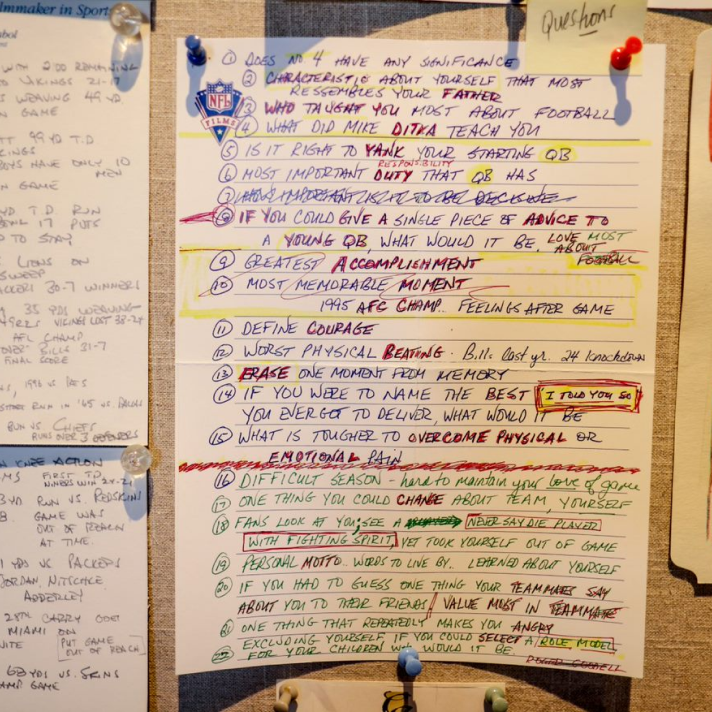 lmmaker in Sports
bol
Questions
WITH 2:00 REMAINING
TO VIKINGS 21-17
WEAVING 49 YD
N GAME
99 YD T.D
KINGS
OYS HAVE ONLY 10
MEN
N GAME
YD T.D RUN
17 PUTS
P TO STAY
LIONS ON
SWEEP
30-7 WINNERS
35 YDS WEAVING
49ERS VIKINGS LOST 38-24
AFL CHAMP
OVER BILLS 31-7
FINAL SCORE
RUN VS. CHIEFS
RUNS OVER 3 DEFENDERS
N KNEE ACTION
FIRST TD
NINERS WIN 24-21
YD RUN VS. REDSKINS
GAME WAS
OUT OF REACH
AT TIME.
YDS VS PACKERS
JORDAN, NITSCHKE
ADDERLEY
28TH CARRY
MIAMI ON
PUT GAME
OUT OF REACH
YDS VS. SKINS
AMP GAME
NFL
FILMS
1 DOES NO 4 HAVE ANY SIGNIFICANCE
2 CHARACTERISTIC ABOUT YOURSELF THAT MOST
RESSEMBLES YOUR FATHER
3 WHO TAUGHT YOU MOST ABOUT FOOTBALL
4 WHAT DID MIKE DITKA TEACH YOU
5 IS IT RIGHT TO YANK YOUR STARTING QB
RESPONSIBILITY
6 MOST IMPORTANT DUTY THAT QB HAS
7 HOW IMPORTANT IS IT TO BE DECISIVE
8 IF YOU COULD GIVE A SINGLE PIECE OF ADVICE TO
A YOUNG QB, WHAT WOULD IT BE. LOVE MOST
ABOUT
FOOTBALL
9 GREATEST ACCOMPLISHMENT
10 MOST MEMORABLE MOMENT
1995 AFC CHAMP.. FEELINGS AFTER GAME
11 DEFINE COURAGE
12 WORST PHYSICAL BEATING - Bills last yr. 24 knockdown
13 ERASE ONE MOMENT FROM MEMORY
14 IF YOU WERE TO NAME THE BEST I TOLD YOU SO
YOU EVER GOT TO DELIVER, WHAT WOULD IT BE
15 WHAT IS TOUGHER TO OVERCOME PHYSICAL OR
EMOTIONAL PAIN
16 DIFFICULT SEASON - hard to maintain your love of game
17 ONE THING YOU COULD CHANGE ABOUT TEAM, YOURSELF
18 FANS LOOK AT YOU; SEE A NEVER SAY DIE PLAYER
WITH FIGHTING SPIRIT, YET TOOK YOURSELF OUT OF GAME
19 PERSONAL MOTTO.. WORDS TO LIVE BY.. LEARNED ABOUT YOURSELF
20 IF YOU HAD TO GUESS ONE THING YOUR TEAMMATE SAY
ABOUT YOU TO THEIR FRIENDS/ VALUE MOST IN TEAMMATE
21 ONE THING THAT REPEATEDLY MAKES YOU ANGRY
22 EXCLUDING YOURSELF IF YOU COULD SELECT A ROLE MODEL
FOR YOUR CHILDREN WHO WOULD IT BE